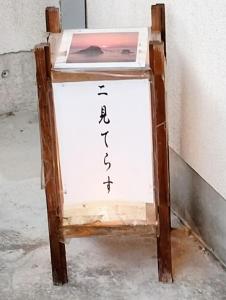 二見てらす